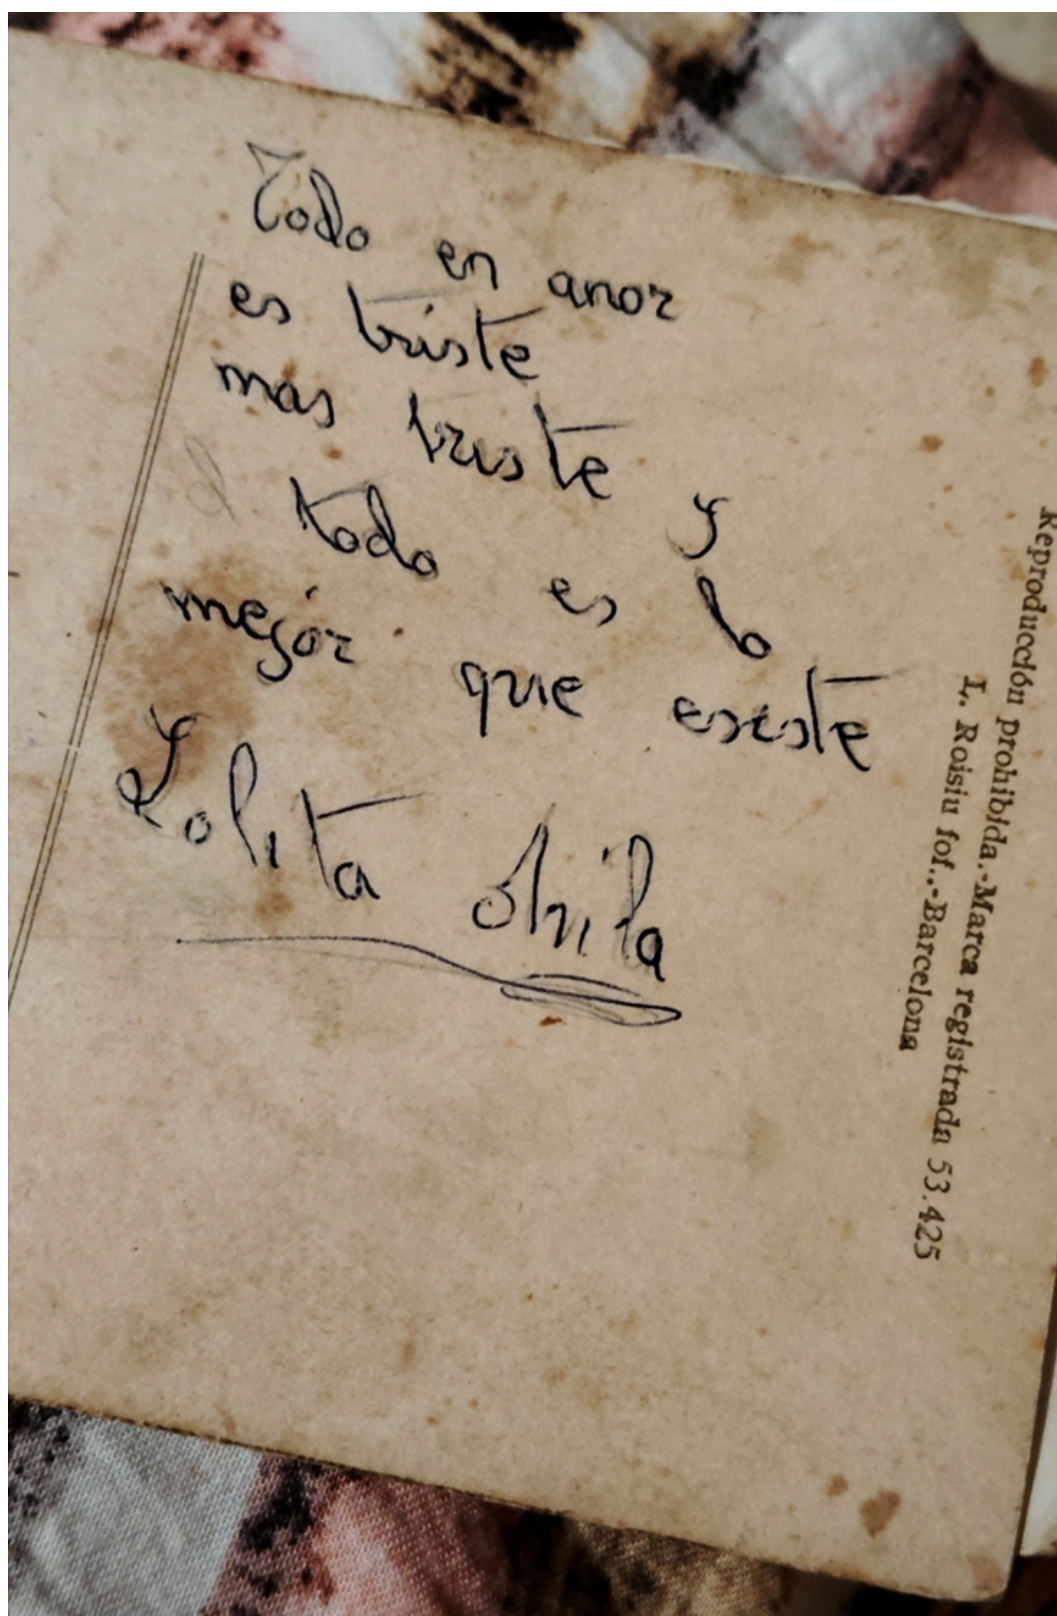 Todo en amor
es triste
mas triste y
todo es lo
mejor que existe
Lolita
Reproducción prohibida.-Marca registrada 53.425
L. Roisin fot..-Barcelona